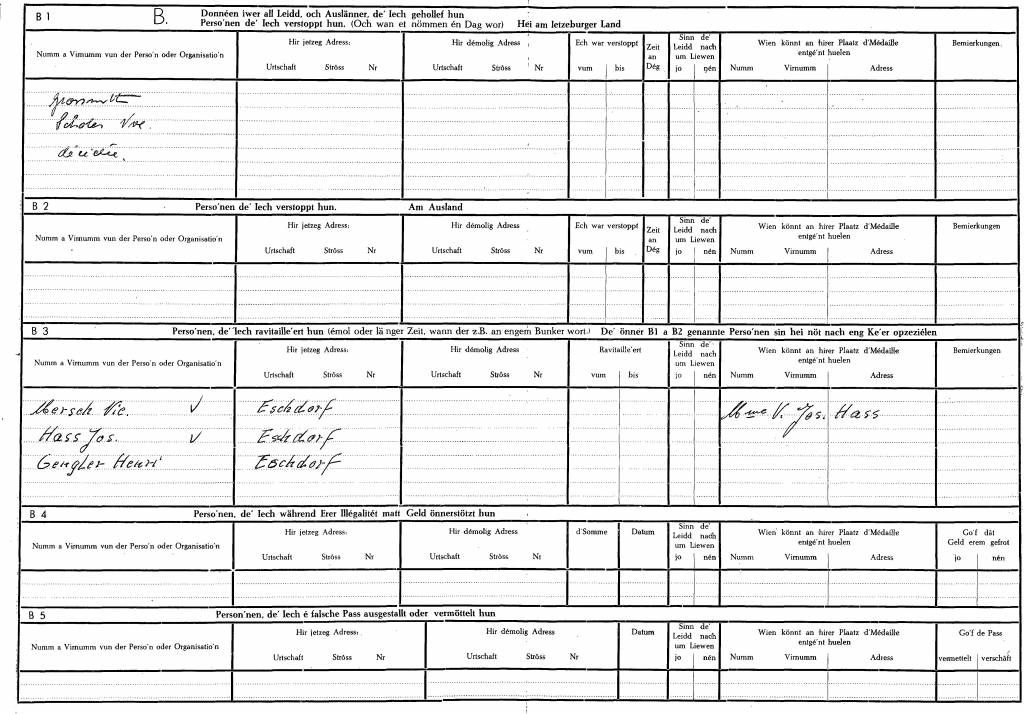 B 1 B. Donnéen iwer all Leidd, och Auslänner, de' Iech gehollef hun
Perso'nen de' Iech verstoppt hun. (Och wan et nömmen én Dag wor) Hei am letzeburger Land
Numm a Virnumm vun der Perso'n oder Organisatio'n Hir jetzeg Adress: Hir démolig Adress Ech war verstoppt Zeit an Dég Sinn de' Leidd nach um Liewen Wien könnt an hirer Plaatz d'Médaille entgé'nt huelen Bemierkungen
Urtschaft Ströss Nr Urtschaft Ströss Nr vum bis jo nén Numm Virnumm Adress
Vve.
décidée.
B 2 Perso'nen de' Iech verstoppt hun. Am Ausland
Numm a Virnumm vun der Perso'n oder Organisatio'n Hir jetzeg Adress: Hir démolig Adress Ech war verstoppt Zeit an Dég Sinn de' Leidd nach um Liewen Wien könnt an hirer Plaatz d'Médaille entgé'nt huelen Bemierkungen
Urtschaft Ströss Nr Urtschaft Ströss Nr vum bis jo nén Numm Virnumm Adress
B 3 Perso'nen, de' Iech ravitaille'ert hun (émol oder länger Zeit, wann der z.B. an engem Bunker wort.) De' önner B1 a B2 genannte Perso'nen sin hei nöt nach eng Ke'er opzeziélen
Numm a Virnumm vun der Perso'n oder Organisatio'n Hir jetzeg Adress: Hir démolig Adress Ravitaille'ert Sinn de' Leidd nach um Liewen Wien könnt an hirer Plaatz d'Médaille entgé'nt huelen Bemierkungen
Urtschaft Ströss Nr Urtschaft Ströss Nr vum bis jo nén Numm Virnumm Adress
Mersch Vic. V Eschdorf Mme V. Jos. Hass
Hass Jos. V Eschdorf
Gengler Henri Eschdorf
B 4 Perso'nen, de' Iech während Erer Illégalitét matt Geld önnerstötzt hun
Numm a Virnumm vun der Perso'n oder Organisatio'n Hir jetzeg Adress: Hir démolig Adress d'Somme Datum Sinn de' Leidd nach um Liewen Wien könnt an hirer Plaatz d'Médaille entgé'nt huelen Go'f dât Geld erem gefrot
Urtschaft Ströss Nr Urtschaft Ströss Nr jo nén Numm Virnumm Adress jo nén
B 5 Person'nen, de' Iech é falsche Pass ausgestallt oder vermöttelt hun
Numm a Virnumm vun der Perso'n oder Organisatio'n Hir jetzeg Adress: Hir démolig Adress Datum Sinn de' Leidd nach um Liewen Wien könnt an hirer Plaatz d'Médaille entgé'nt huelen Go'f de Pass
Urtschaft Ströss Nr Urtschaft Ströss Nr jo nén Numm Virnumm Adress vermettelt verschâft